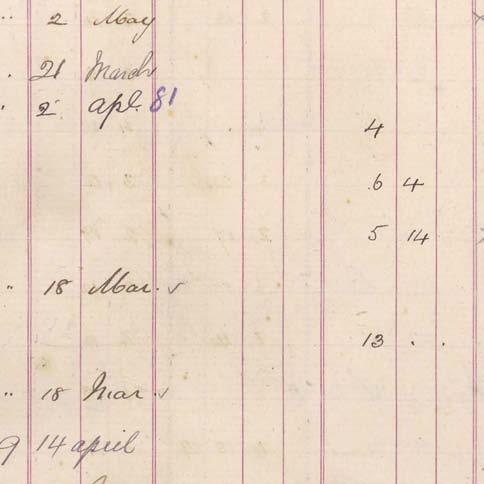 " 2 May
. 21 March
" 2 apl. 81
4
.6 4
5 14
" 18 Mar. ✓
13 . .
" 18 Mar. ✓
9 14 april